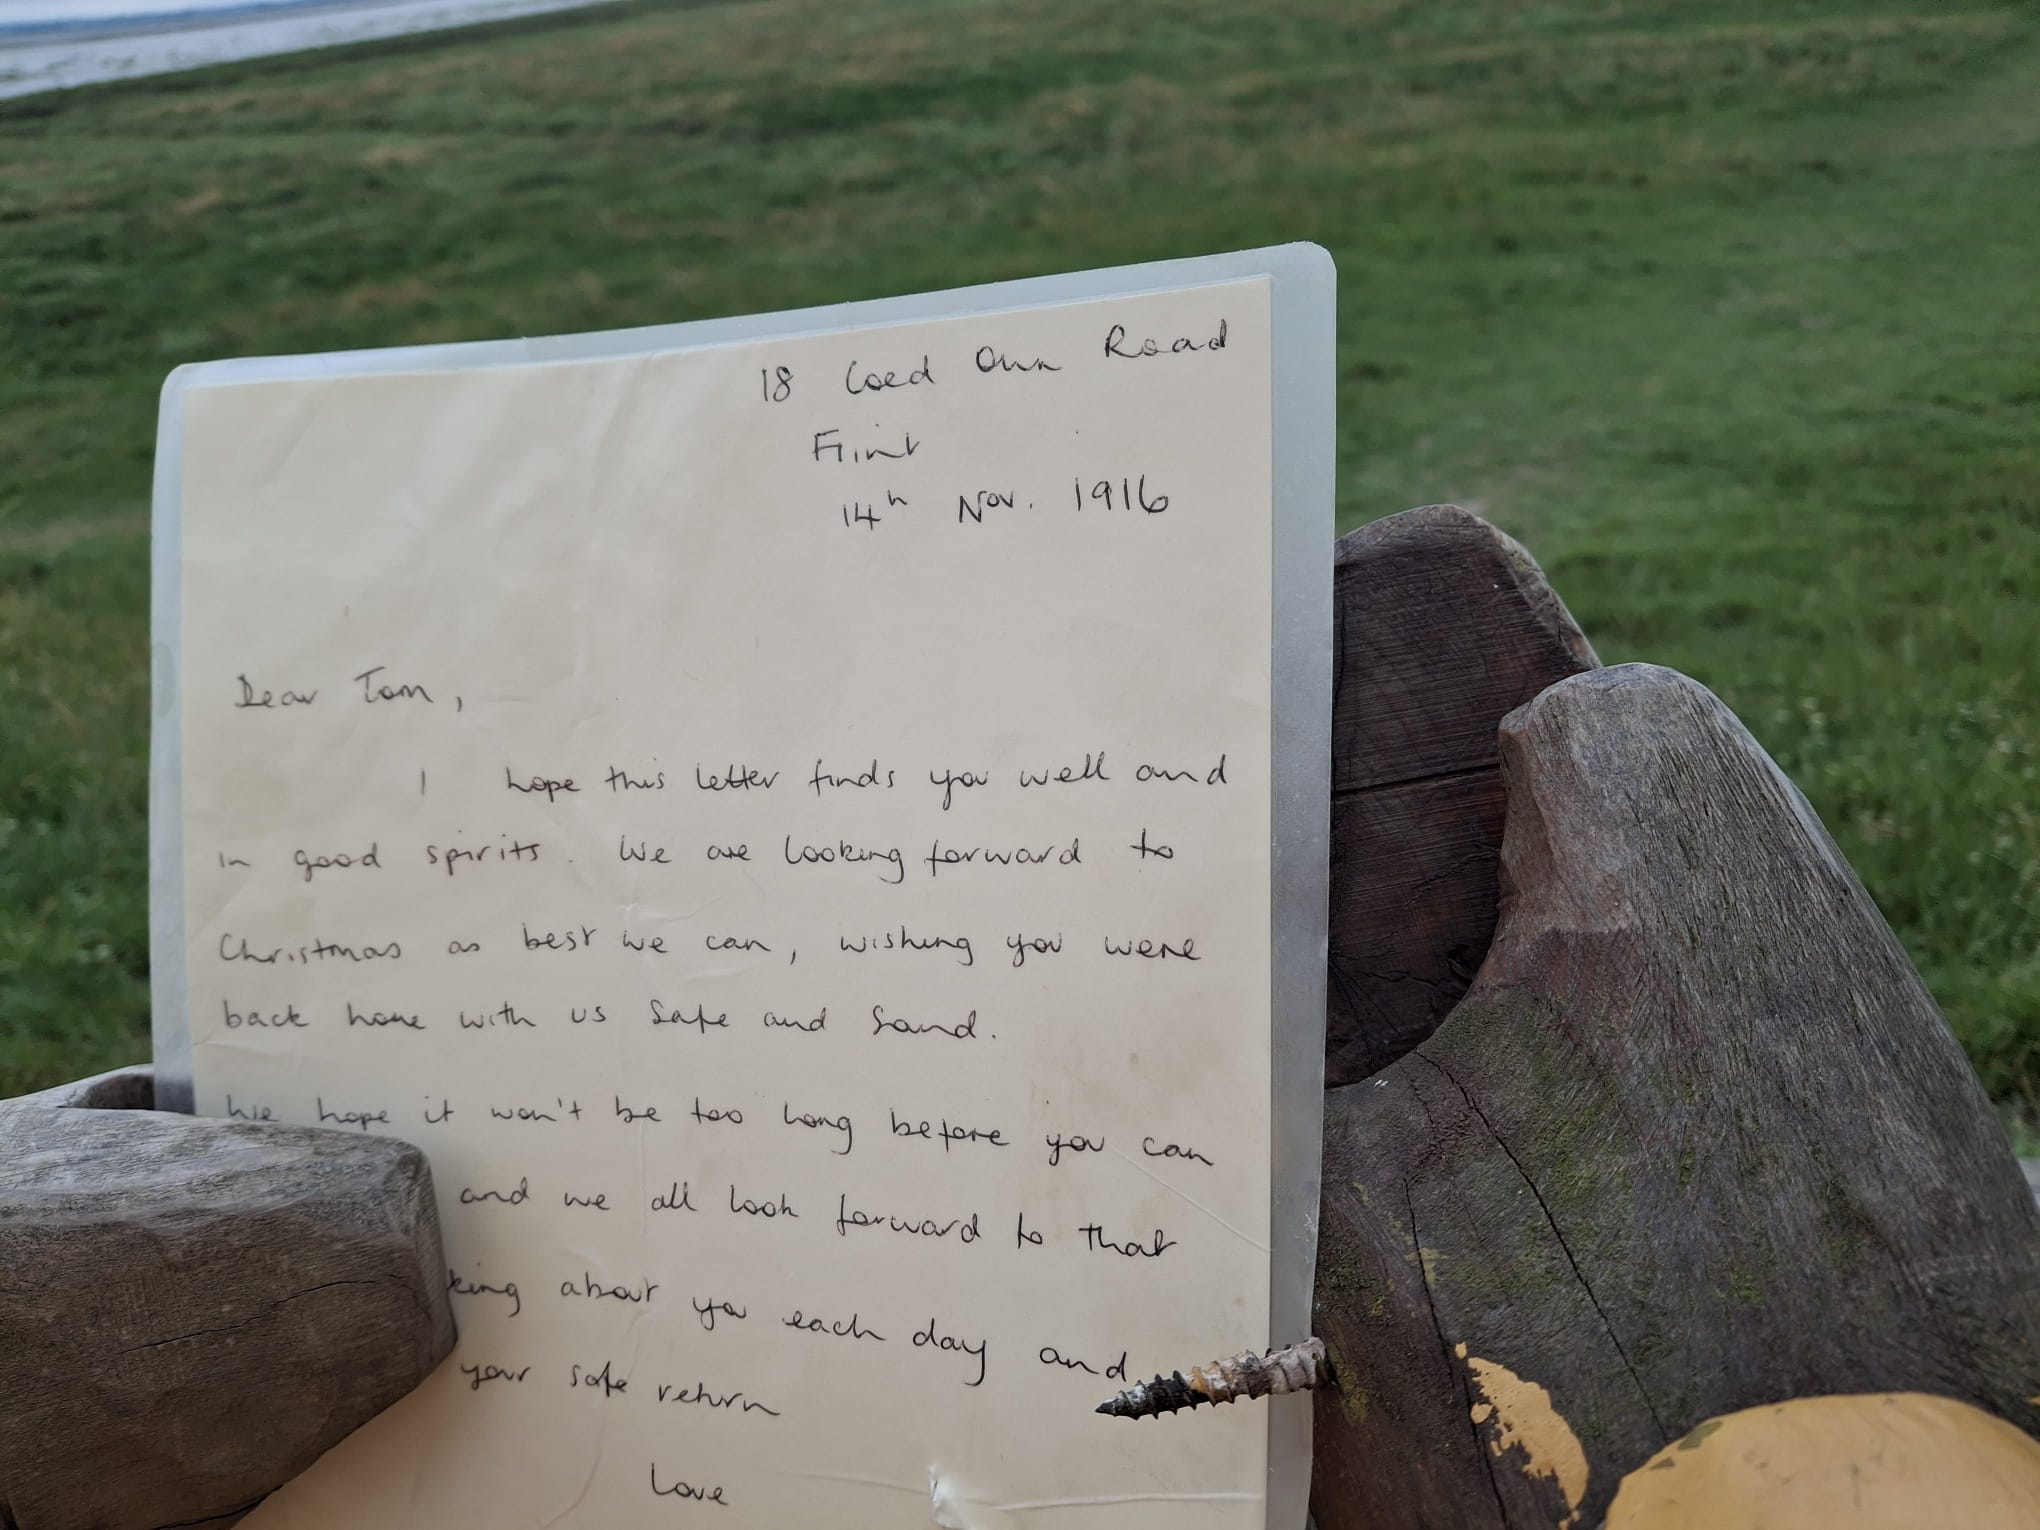 18 Coed Onn Road
Flint
14th Nov. 1916
Dear Tom,
I hope this letter finds you well and
in good spirits. We are looking forward to
Christmas as best we can, wishing you were
back home with us safe and sound.
We hope it won't be too long before you can
and we all look forward to that
king about you each day and
your safe return
Love